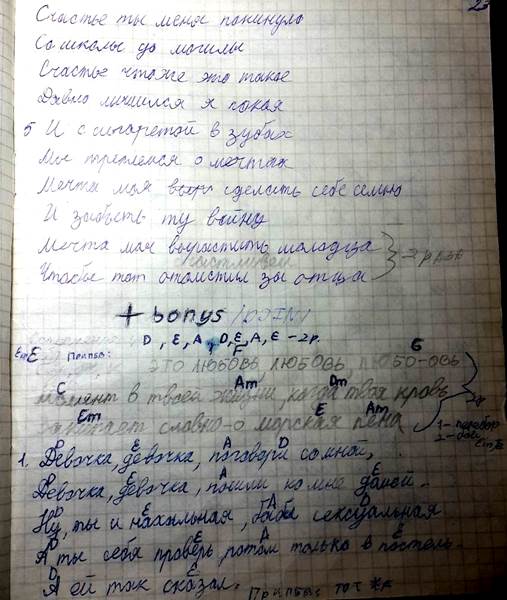 23
Счастье ты меня покинуло
Со школы до могилы
Счастье что же это такое
Давно лишился я покоя
5 И с сигаретой в зубах
Мы треплемся о мечтах
Мечта моя сделать себе семью
И забыть ту войну
Мечта моя возрастить молодца
счастливой
Чтобы тот отомстил за отца } 2 раза
+ bonys
D, E, A, D, E, A, E - 2р.
Em E Припев: F G
это любовь, любовь, любо-овь
C Am Dm
момент в твоей жизни, когда твоя кровь
Em E Am
закипает словно-о морская пена
2р
1 - перебор
2 - бой
D E A D
1. Девочка девочка, поговори со мной,
D E A E
Девочка, девочка, пошли ко мне домой.
D E A D
Ну, ты и нахальная, баба сексуальная
D E A E
А ты себя проверь, потом только в постель.
D E
А ей так сказал. Припев: тот же